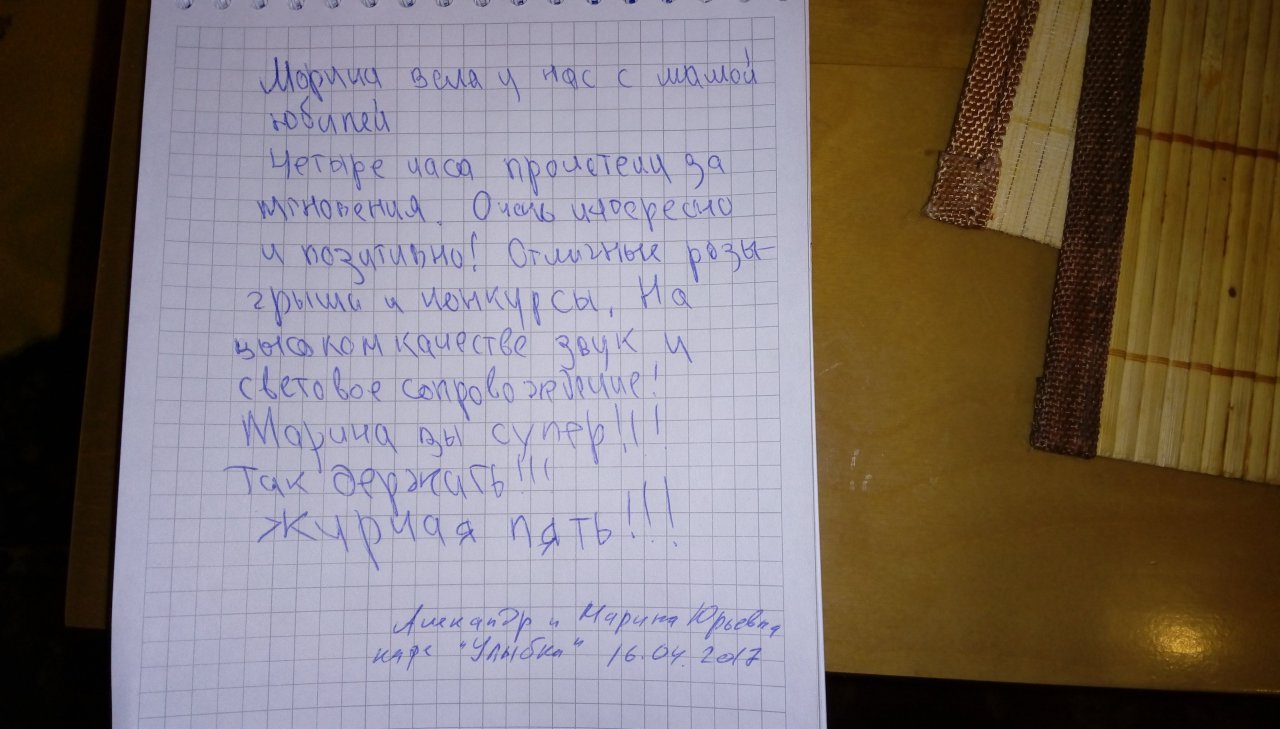 Марина вела у нас с мамой
юбилей
Четыре часа пролетели за
мгновения. Очень интересно
и позитивно! Отличные розы-
грыши и конкурсы. На
высоком качестве звук и
световое сопровождение!
Марина вы супер!!!!
Так держать!!!
Жирная пять!!!
Александр и Марина Юрьевна
кафе "Улыбка" 16.04.2017